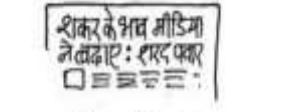 शक्कर के भाव मीडिया
ने बढ़ाए : शरद पवार